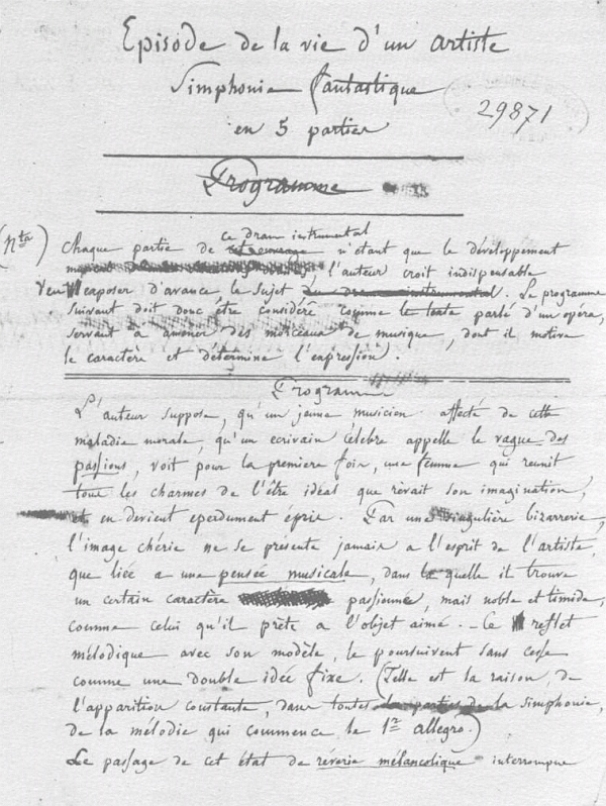 Episode de la vie d'un artiste
Simphonie fantastique
29871
en 5 parties
Programme
(Nta)
ce drame instrumental
Chaque partie de n'etant que le développement
musical l'auteur croit indispensable
d'exposer d'avance le sujet du drame instrumental. Le programme
suivant doit donc être considéré comme le texte parlé d'un opéra,
servant à amener des morceaux de musique, dont il motive
le caractère et détermine l'expression.
Programme
L'auteur suppose, qu'un jeune musicien affecté de cette
maladie morale, qu'un ecrivain célebre appelle le vague des
passions, voit pour la premiere fois, une femme qui reunit
tous les charmes de l'être idéal que rêvait son imagination,
et en devient eperdument épris. Par une singulière bizarrerie,
l'image chérie ne se présente jamais a l'esprit de l'artiste,
que liée a une pensée musicale, dans laquelle il trouve
un certain caractère passionnée, mais noble et timide,
comme celui qu'il prête a l'objet aimé. _ Ce reflet
mélodique avec son modèle, le poursuivent sans cesse
comme une double idée fixe. (Telle est la raison, de
l'apparition constante, dans toutes les parties de la simphonie,
de la mélodie qui commence le 1er allegro.)
Le passage de cet état de rêverie mélancolique interrompue